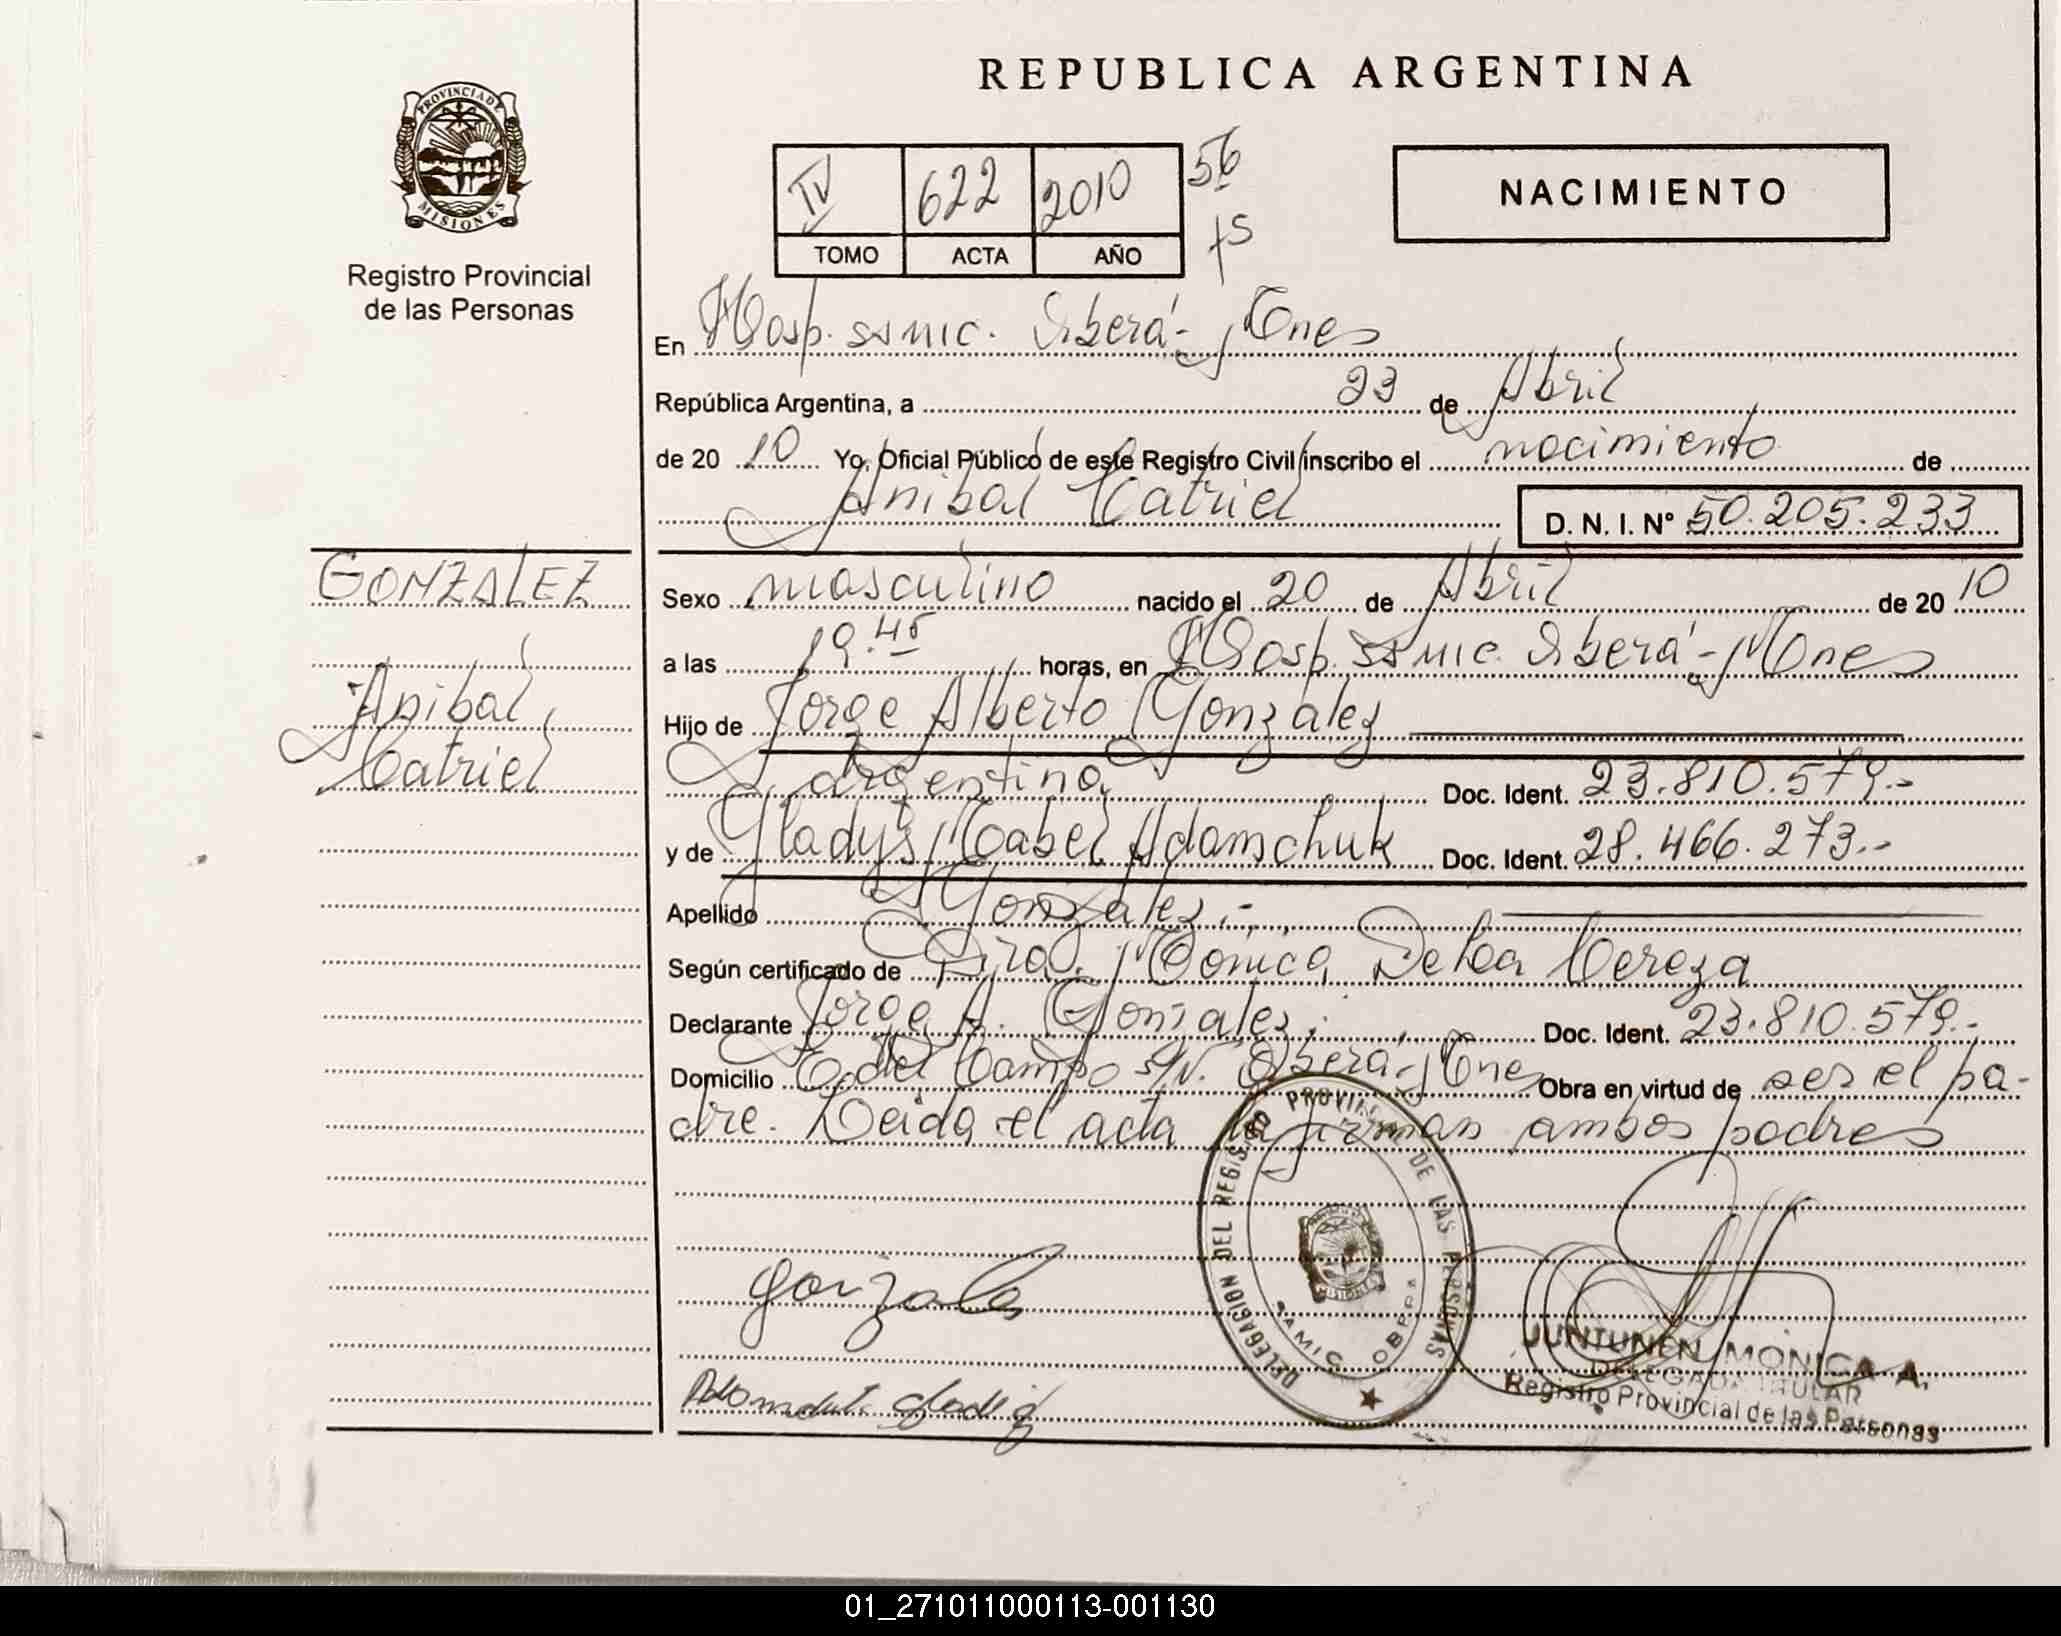 REPUBLICA ARGENTINA
PROVINCIA DE
MISIONES
Registro Provincial
de las Personas
IV 622 2010 56
TOMO ACTA AÑO fs
NACIMIENTO
En Hosp. SAMIC. Oberá - Mnes
República Argentina, a 23 de Abril
de 20 10 Yo, Oficial Público de este Registro Civil inscribo el nacimiento de
Anibal Catriel D. N. I. Nº 50.205.233
GONZALEZ
Anibal
Catriel
Sexo masculino nacido el 20 de Abril de 20 10
a las 19.45 horas, en Hosp. SAMIC. Oberá - Mnes
Hijo de Jorge Alberto Gonzalez
argentino, Doc. Ident. 23.810.579.-
y de Gladys Mabel Adamchuk Doc. Ident. 28.466.273.-
Apellido Gonzalez.-
Según certificado de Dra. Mónica Cereza
Declarante Jorge A. Gonzalez. Doc. Ident. 23.810.579.-
Domicilio C. del Campo s/N. Oberá - Mnes Obra en virtud de ser el pa-
dre. Leida el acta la firman ambos padres
DELEGACION DEL REGISTRO PROVINCIAL DE LAS PERSONAS
SAMIC OBERA
MISIONES
Gonzalez
Adamchuk Gladis
JUNTUNEN MONICA A.
DELEGADA TITULAR
Registro Provincial de las Personas
01_271011000113-001130